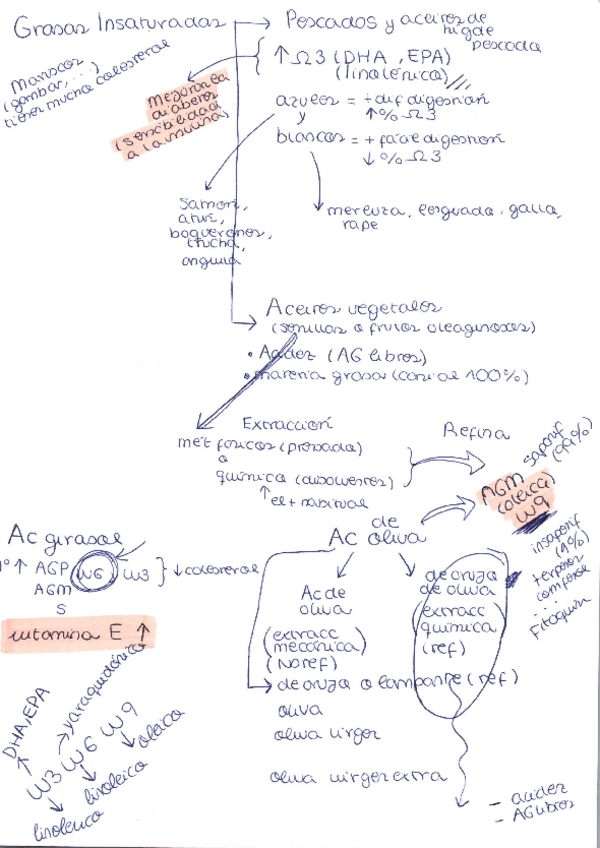 Grasas Insaturadas
Pescados y aceites de
hígado
pescado
↑ Ω3 (DHA, EPA)
(linolénico)
Mariscos
(gambas, ...)
tienen mucho colesterol
mejora
diabetes
(sensibilidad
a la insulina)
azules = + dif digestión
↑ % Ω3
y
blancos = + fácil digestión
↓ % Ω3
merluza, lenguado, gallo,
rape
salmón,
atún,
boquerones,
trucha,
anguila
Aceites vegetales
(semillas o frutos oleaginosos)
• Acidez (AG libres)
• materia grasa (casi al 100%)
Extracción
mét físicos (prensada)
o
química (disolventes)
↑ el + habitual
Refina
AGM
(oleico)
W9
saponif
(99%)
insaponif
(1%)
...
Ac girasol
↑ AGP W6, W3 } ↓ colesterol
AGM
S
vitamina E ↑
DHA, EPA
araquidónico
W3 W6 W9
oleico
linoleico
linolenico
Ac de oliva
Ac de
oliva
(extracc
mecánica)
(No ref)
de orujo
de oliva
(extracc
química)
(ref)
de orujo o lampante (ref)
oliva
oliva virgen
oliva virgen extra
- acidez
- AG libres